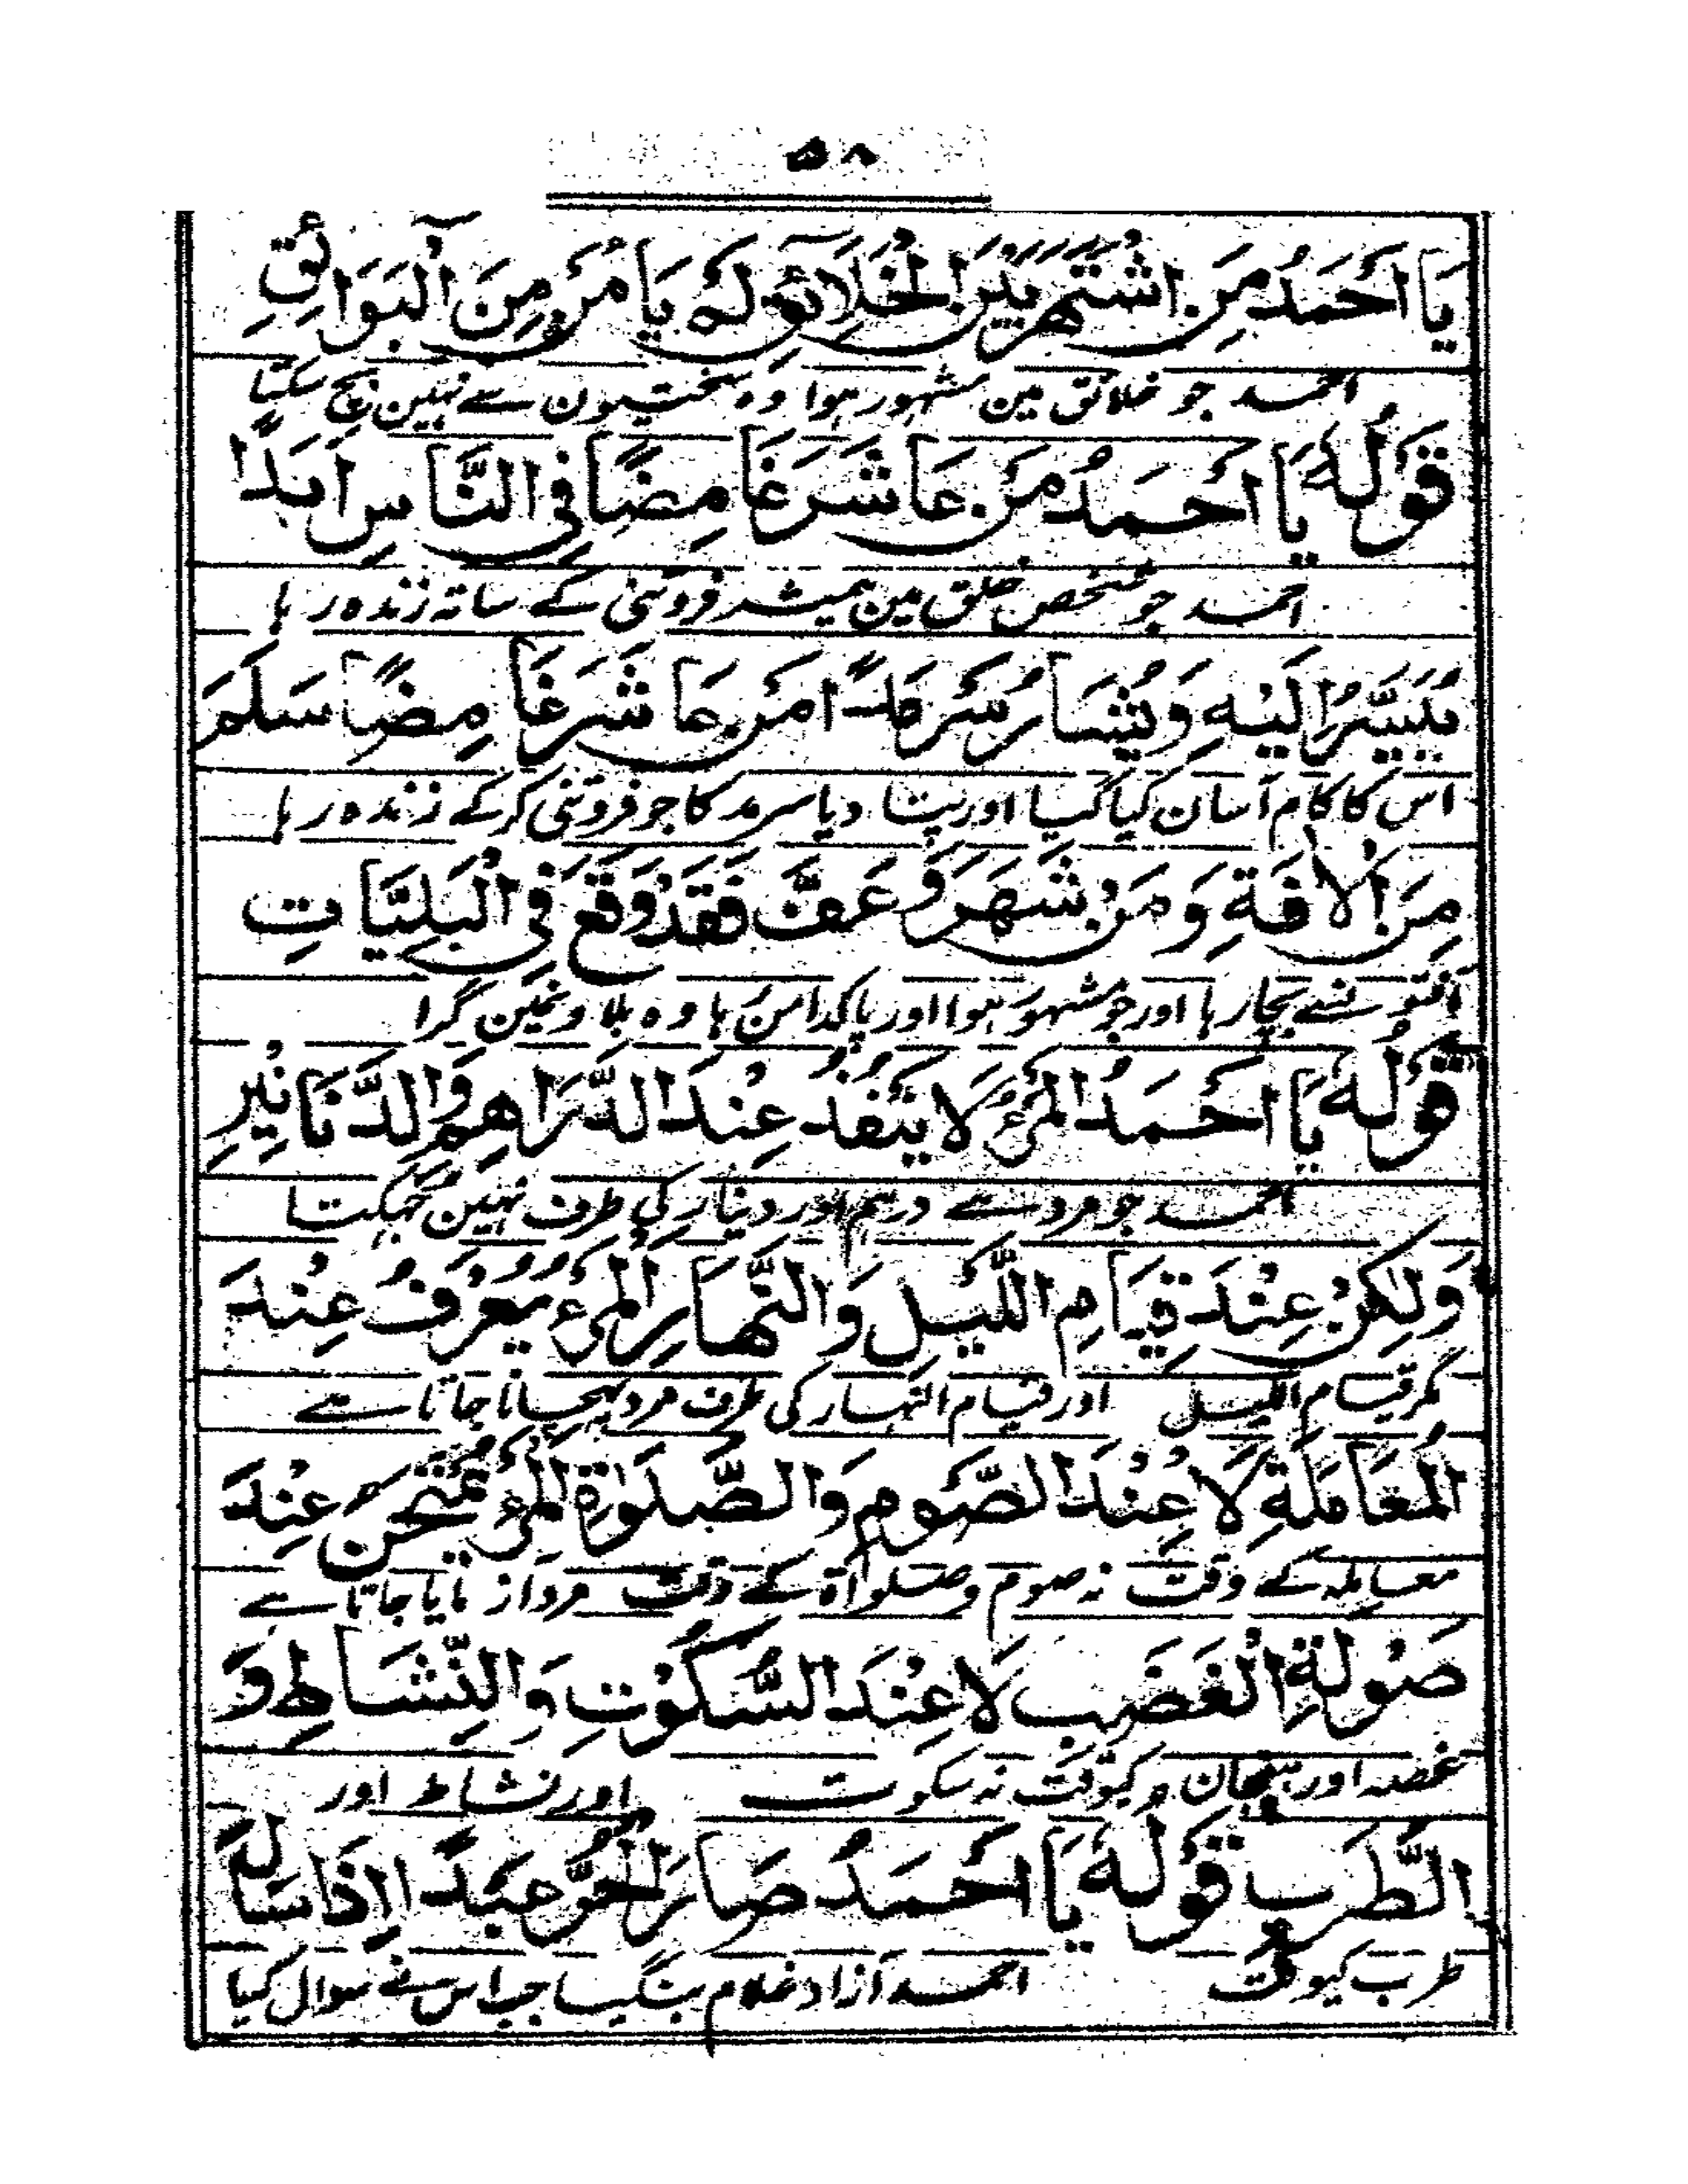 ۵۸
يَا اَحْمَدُ مَنِ اشْتَهَرَ بَيْنَ الْخَلَآئِقِ لَمْ يَامَنْ مِنَ الْبَوَآئِقِ
احمد جو خلائق مین مشہور ہوا وہ سختیون سے نہین بچ سکتا
قَوْلُهٗ يَا اَحْمَدُ مَنْ عَاشَ غَامِضًا فِي النَّاسِ اَبَدًا
احمد جو شخص خلق مین ہمیشہ فروتنی کے ساتہ زندہ رہا
يُيَسَّرُ اِلَيْهِ وَيُشَارُ سَرْمَدًا مَنْ عَاشَ غَامِضًا سَلَمَ
اس کا کام آسان کیا گیا اور پتا دیا سرمد کا جو فروتنی کرکے زندہ رہا
مِنَ الْاٰفَةِ وَمَنْ شَهَرَ وَعَفَّ فَقَدْ وَقَعَ فِي الْبَلِيَّاتِ
آفتونسے بچا رہا اور جو مشہور ہوا اور پاکدامن رہا وہ بلاونمین گرا
قَوْلُهٗ يَا اَحْمَدُ الْمَرْءُ لَا يَنْفُذُ عِنْدَ الدَّرَاهِمِ وَالدَّنَانِيْرِ
احمد جو مرد ہے درہم اور دینار کی طرف نہین جھکتا
وَلٰكِنْ عِنْدَ قِيَامِ اللَّيْلِ وَالنَّهَارِ الْمَرْءُ يُعْرَفُ عِنْدَ
مگر قیام اللیل اور قیام النہار کی طرف مرد پہچانا جاتا ہے
الْمُعَامَلَةِ لَا عِنْدَ الصَّوْمِ وَالصَّلٰوةِ الْمَرْءُ يُمْتَحَنُ عِنْدَ
معاملہ کے وقت نہ صوم وصلواۃ کے وقت مرد آزمایا جاتا ہے
صَوْلَةِ الْغَضَبِ لَا عِنْدَ السُّكُوْتِ وَالنِّشَاطِ وَ
غصہ اور ہیجان کیوقت نہ سکوت اور نشاط اور
الطَّرَبِ قَوْلُهٗ يَا اَحْمَدُ صَارَ الْحُرُّ عَبْدًا اِذَا سَاَلَ
طرب کیوقت احمد آزاد غلام بنگیا جب اس نے سوال کیا